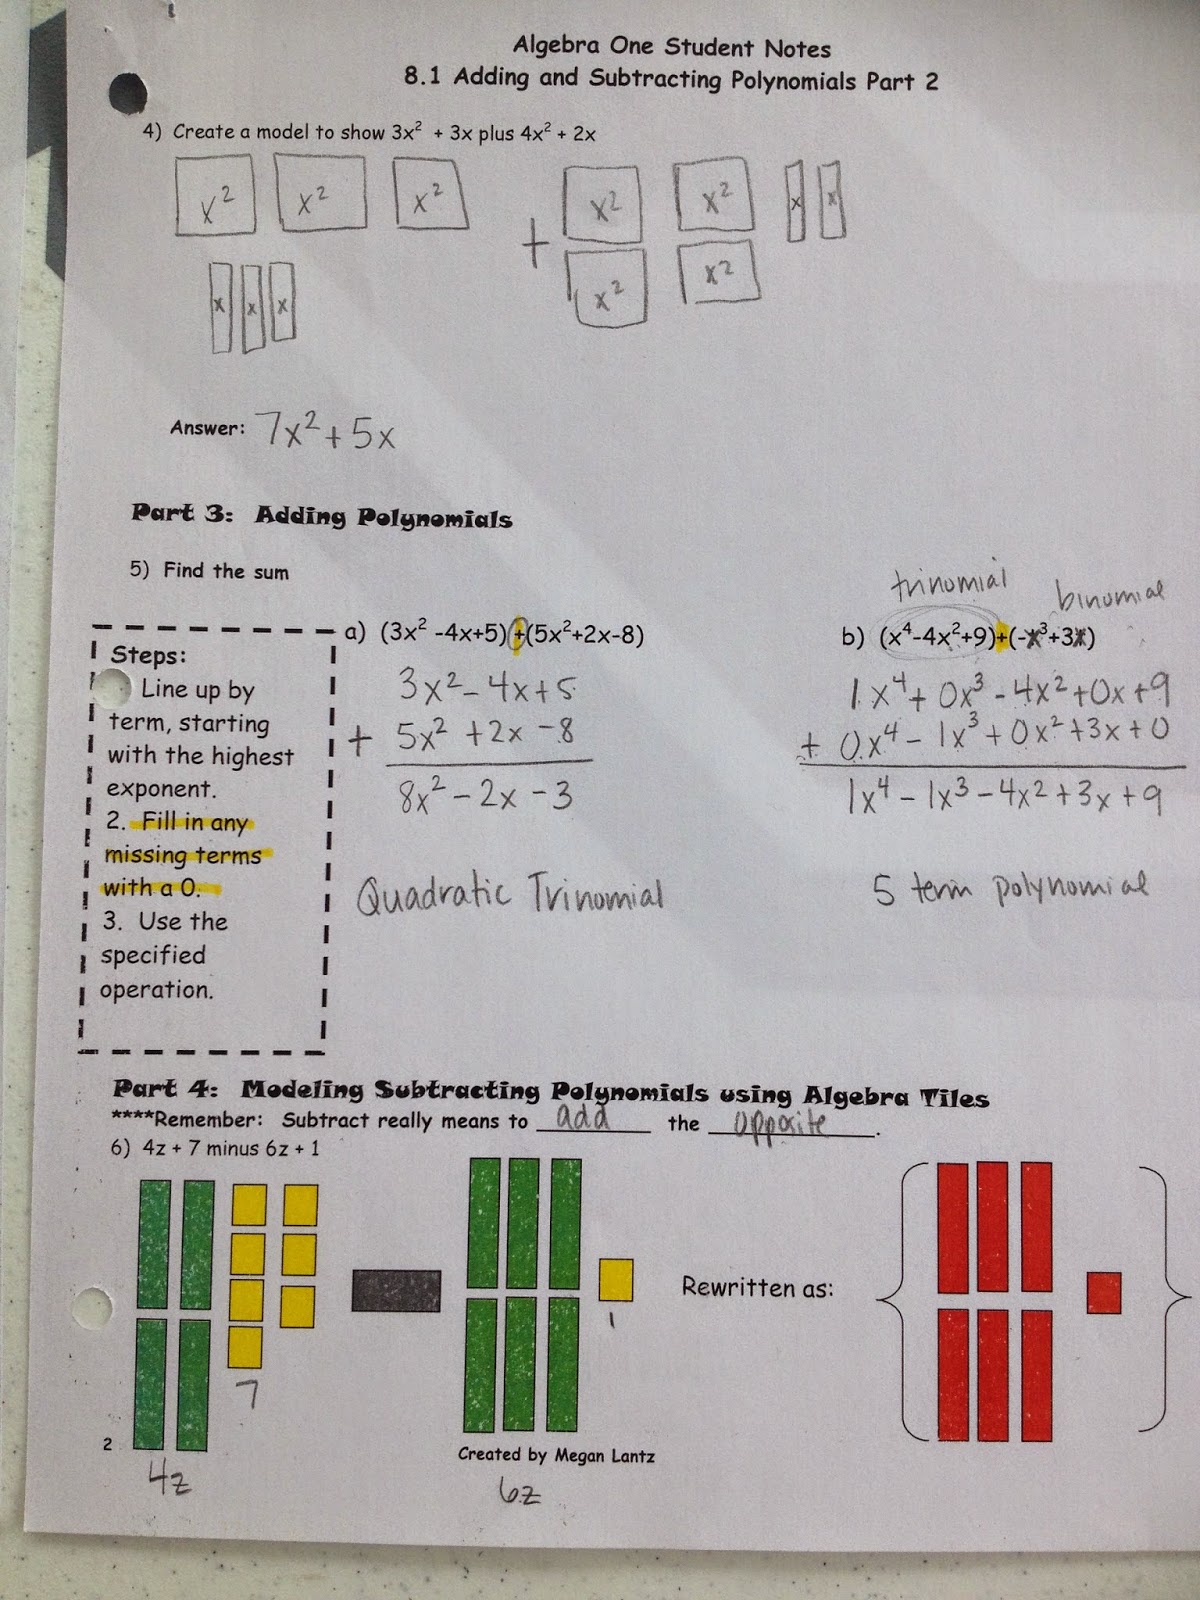 Algebra One Student Notes
8.1 Adding and Subtracting Polynomials Part 2
4) Create a model to show 3x² + 3x plus 4x² + 2x
x² x² x² + x² x² x x
x² x²
x x x
Answer: 7x² + 5x
Part 3: Adding Polynomials
5) Find the sum
trinomial binomial
a) (3x² -4x+5)+(5x²+2x-8)
b) (x⁴-4x²+9)+(-x³+3x)
Steps:
Line up by
term, starting
with the highest
exponent.
2. Fill in any
missing terms
with a 0.
3. Use the
specified
operation.
3x² - 4x + 5
+ 5x² + 2x - 8
8x² - 2x - 3
Quadratic Trinomial
1x⁴ + 0x³ - 4x² + 0x + 9
+ 0x⁴ - 1x³ + 0x² + 3x + 0
1x⁴ - 1x³ - 4x² + 3x + 9
5 term polynomial
Part 4: Modeling Subtracting Polynomials using Algebra Tiles
****Remember: Subtract really means to add the opposite.
6) 4z + 7 minus 6z + 1
Rewritten as:
1
7
2
Created by Megan Lantz
4z 6z